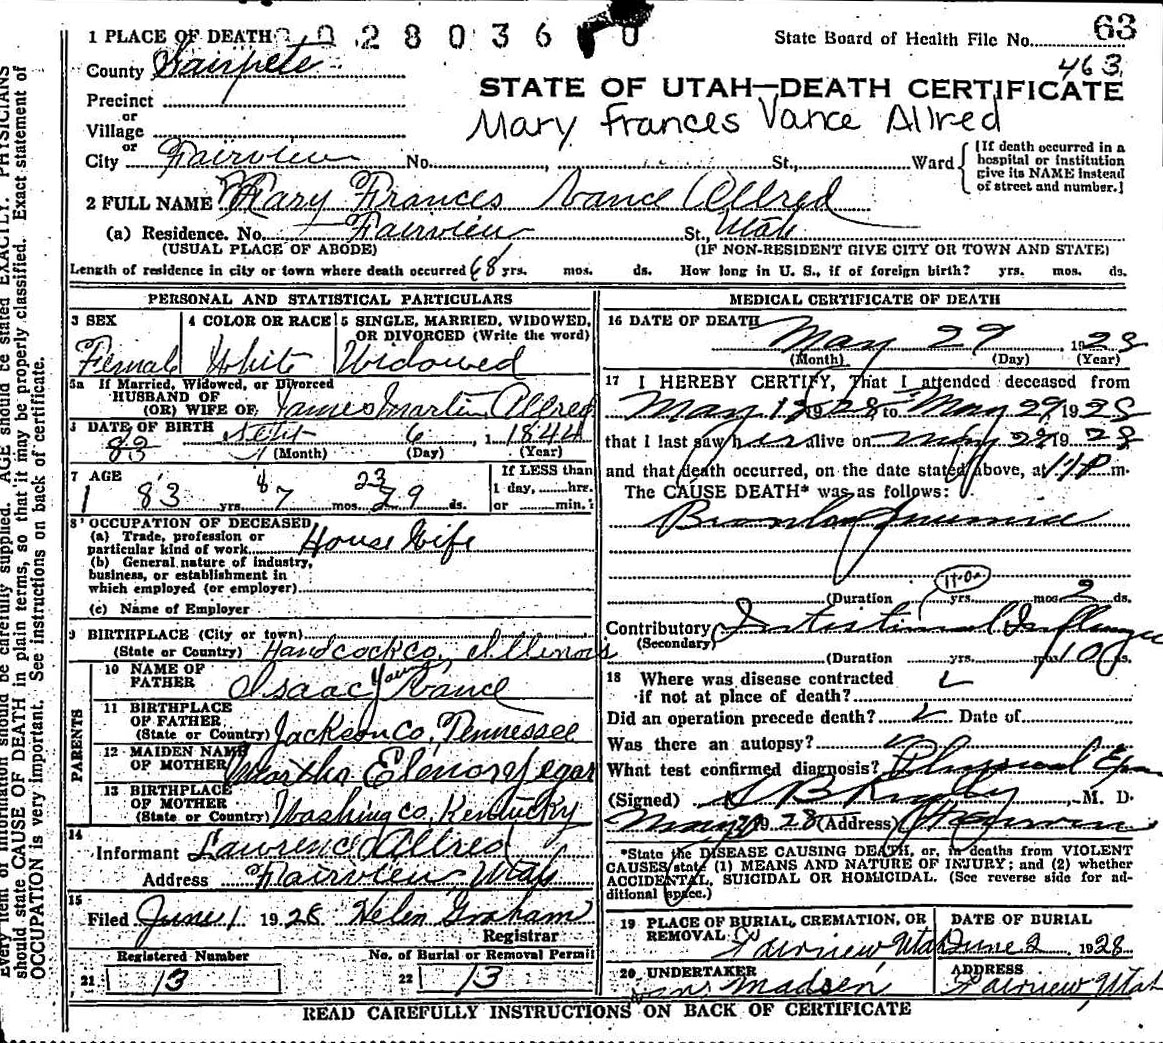 1 PLACE OF DEATH
2 8 0 3 6 0
State Board of Health File No. 63
463
County Sanpete
STATE OF UTAH—DEATH CERTIFICATE
Precinct
or
Village
Mary Frances Vance Allred
or
City Fairview No. St., Ward
[If death occurred in a
hospital or institution
give its NAME instead
of street and number.]
2 FULL NAME Mary Frances Vance Allred
(a) Residence. No. Fairview St., Utah
(USUAL PLACE OF ABODE) (IF NON-RESIDENT GIVE CITY OR TOWN AND STATE)
Length of residence in city or town where death occurred 68 yrs. mos. ds. How long in U. S., if of foreign birth? yrs. mos. ds.
PERSONAL AND STATISTICAL PARTICULARS
3 SEX 4 COLOR OR RACE 5 SINGLE, MARRIED, WIDOWED,
OR DIVORCED (Write the word)
Female White Widowed
5a If Married, Widowed, or Divorced
HUSBAND OF
(OR) WIFE OF James Martin Allred
DATE OF BIRTH Sept 6, 1844
83 (Month) (Day) (Year)
7 AGE If LESS than
8 23 1 day, hrs.
83 yrs. 7 mos. 29 ds. or min.
8 OCCUPATION OF DECEASED
(a) Trade, profession or
particular kind of work House Wife
(b) General nature of industry,
business, or establishment in
which employed (or employer)
(c) Name of Employer
9 BIRTHPLACE (City or town)
(State or Country) Handcock co, Illinois
PARENTS
10 NAME OF
FATHER Isaac Young Vance
11 BIRTHPLACE
OF FATHER
(State or Country) Jackson co, Tennessee
12 MAIDEN NAME
OF MOTHER Martha Elenor Yegar
13 BIRTHPLACE
OF MOTHER
(State or Country) Washing co, Kentucky
14
Informant Lawrence Allred
Address Fairview Utah
15
Filed June 1 1928 Helen Graham
Registrar
Registered Number No. of Burial or Removal Permit
21 13 22 13
MEDICAL CERTIFICATE OF DEATH
16 DATE OF DEATH May 29, 1928
(Month) (Day) (Year)
17 I HEREBY CERTIFY, That I attended deceased from
May 19 1928, to May 29 1928
that I last saw her alive on May 29 1928
and that death occurred, on the date stated above, at 11 P m.
The CAUSE DEATH* was as follows:
(Duration yrs. mos. 2 ds.
Contributory Intestinal Influenza
(Secondary)
(Duration yrs. mos. 10 ds.
18 Where was disease contracted
if not at place of death?
Did an operation precede death? Date of
Was there an autopsy?
What test confirmed diagnosis? Physical Exam
(Signed) S B Rigby, M. D.
May 29 1928 (Address) Fairview
*State the DISEASE CAUSING DEATH, or, in deaths from VIOLENT
CAUSES state (1) MEANS AND NATURE OF INJURY; and (2) whether
ACCIDENTAL, SUICIDAL OR HOMICIDAL. (See reverse side for ad-
ditional space.)
19 PLACE OF BURIAL, CREMATION, OR DATE OF BURIAL
REMOVAL Fairview Utah June 2 1928
20 UNDERTAKER ADDRESS
Madsen Fairview, Utah
READ CAREFULLY INSTRUCTIONS ON BACK OF CERTIFICATE
Every item of information should be carefully supplied. AGE should be stated EXACTLY. PHYSICIANS
should state CAUSE OF DEATH in plain terms, so that it may be properly classified. Exact statement of
OCCUPATION is very important. See instructions on back of certificate.